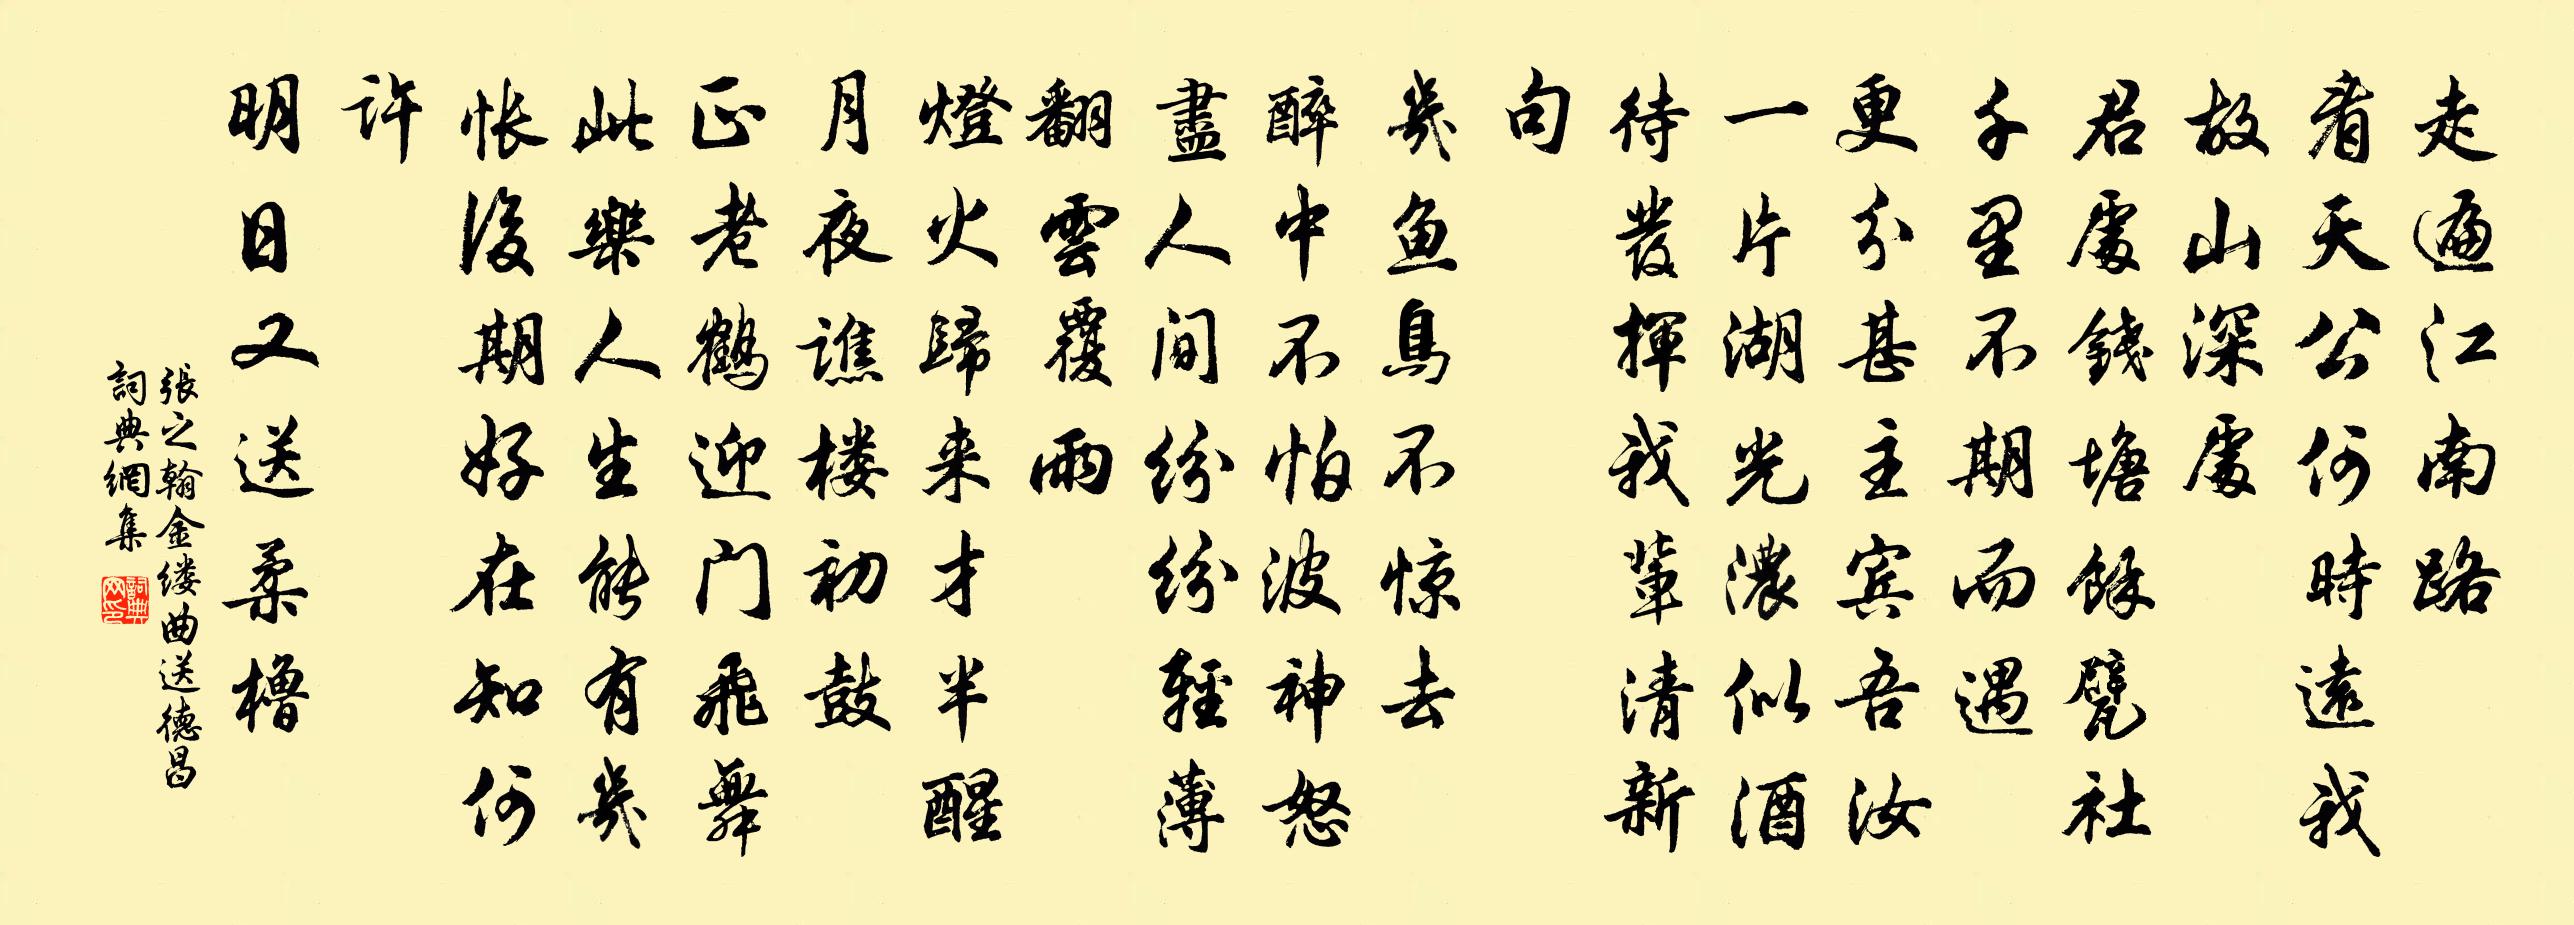 走遍江南路
看天公何時遠我
故山深處
君處錢塘餘甓社
千里不期而遇
更分甚主宾吾汝
一片湖光濃似酒
待發揮我輩清新
句
幾鱼鳥不惊去
醉中不怕波神怒
盡人间纷纷輕薄
翻雲覆雨
燈火歸来才半醒
月夜譙楼初鼓
正老鶴迎门飛舞
此樂人生能有幾
怅後期好在知何
许
明日又送柔櫓
張之翰金缕曲送德昌
詞典網集
詞典网印